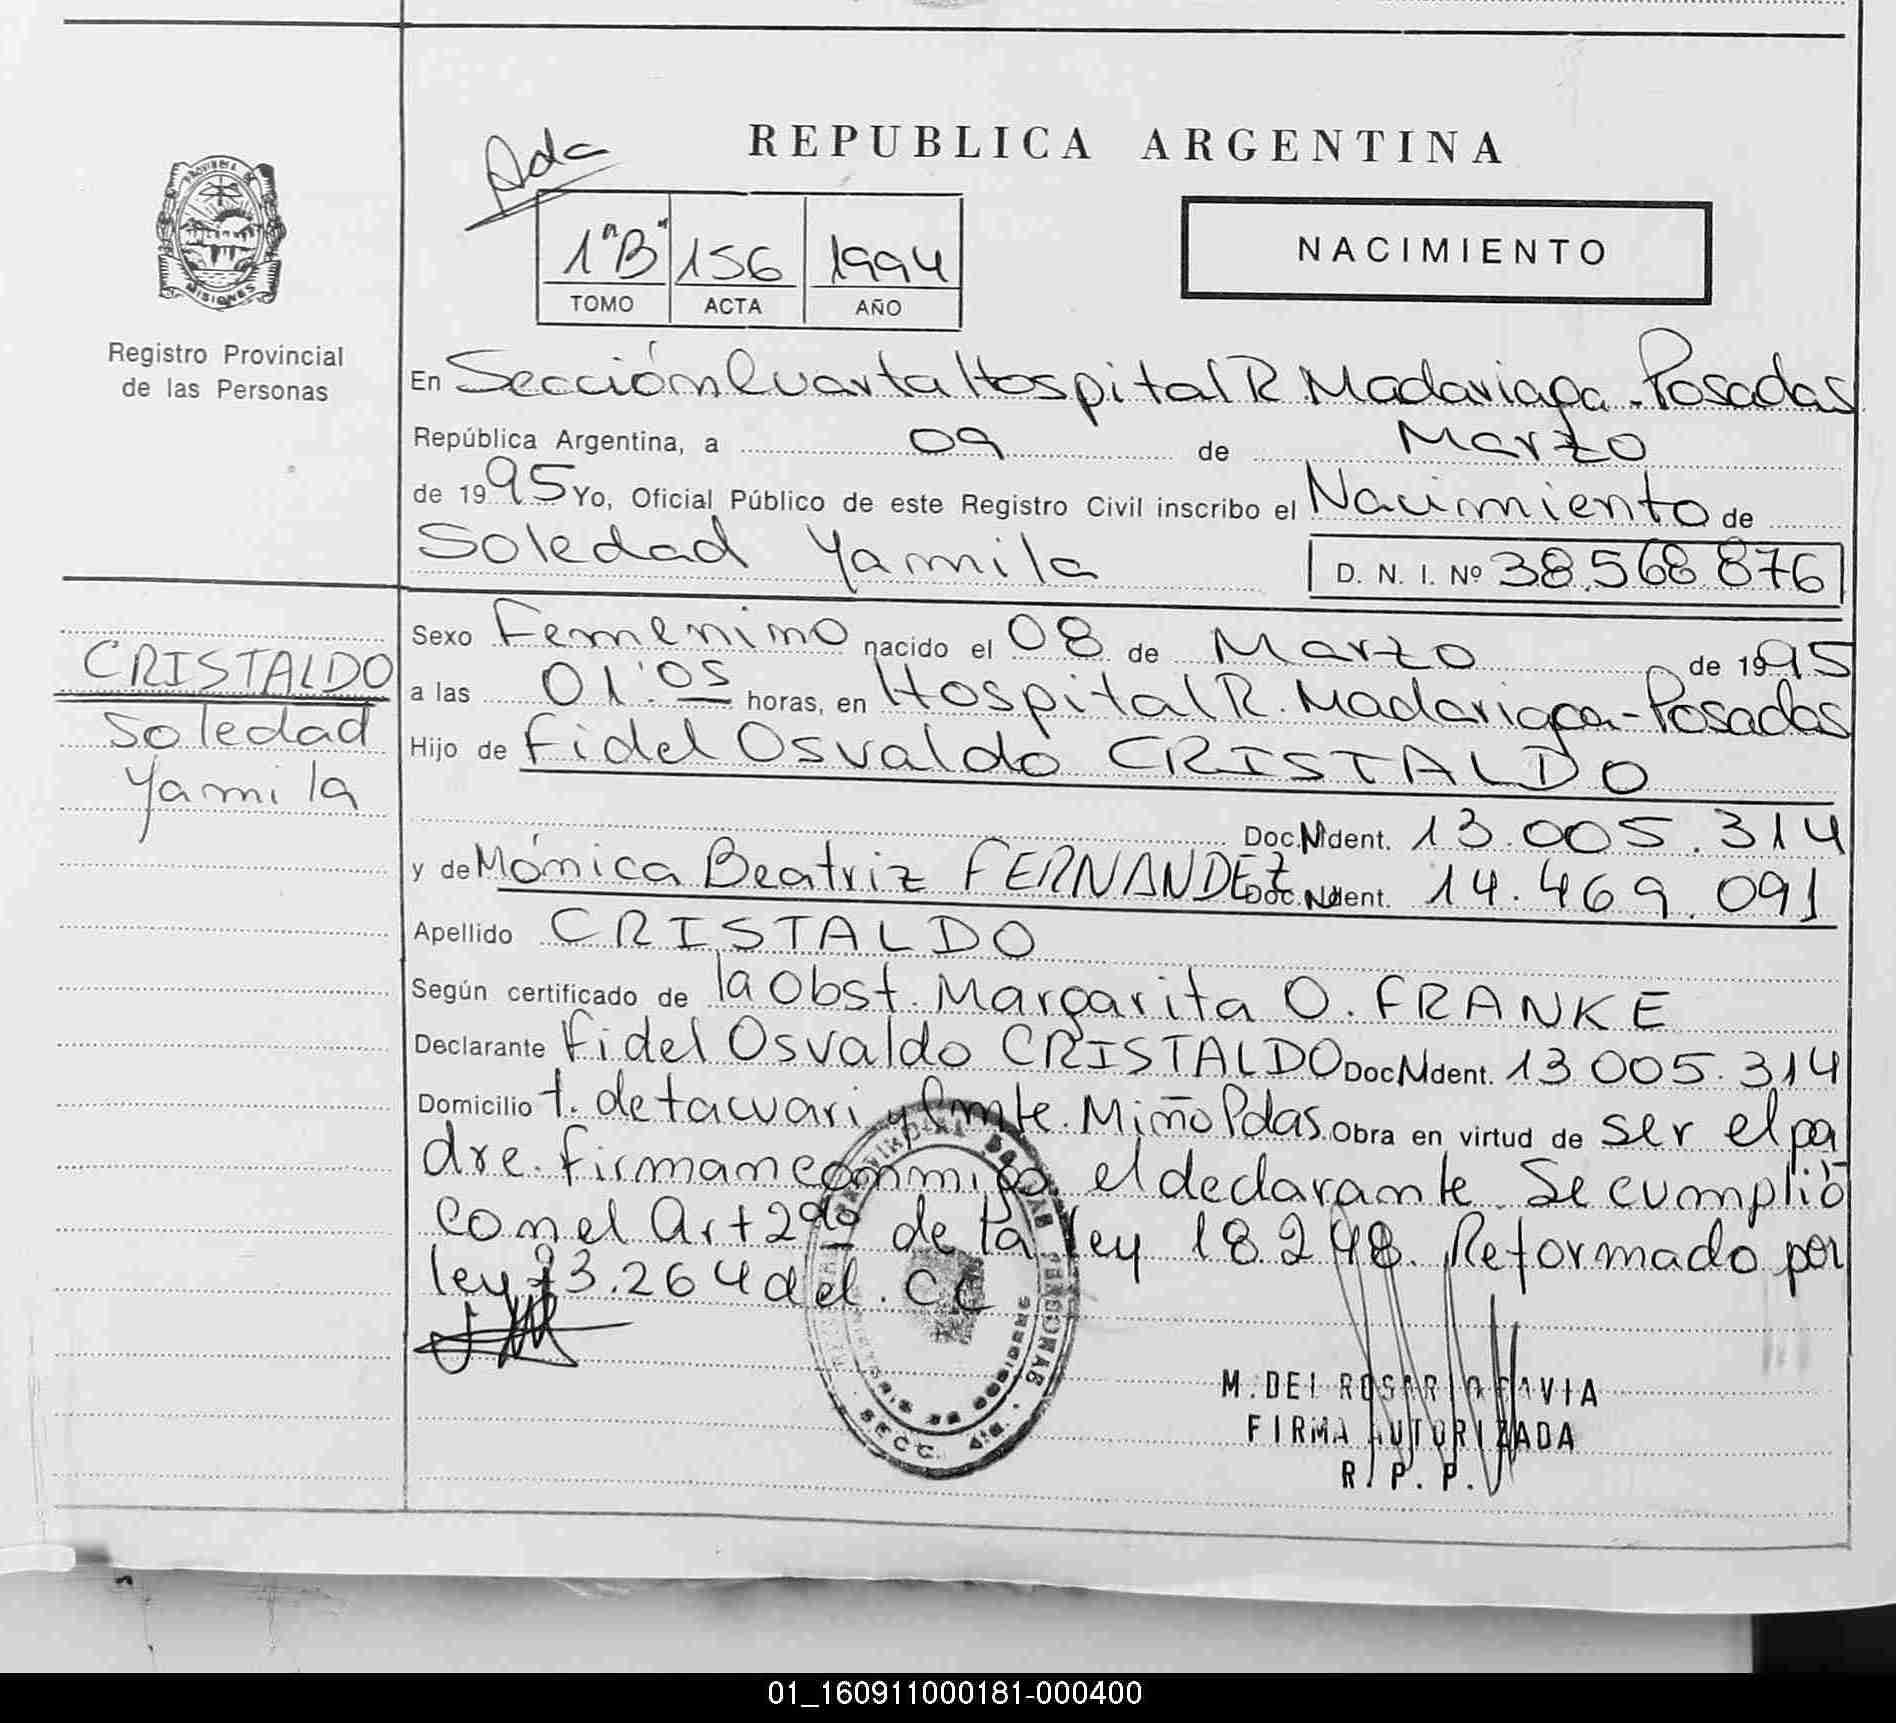 REPUBLICA ARGENTINA
Ada
1"B" 156 1994
TOMO ACTA AÑO
NACIMIENTO
PROVINCIA DE MISIONES
Registro Provincial
de las Personas
En Sección Cuarta Hospital R. Madariaga - Posadas
República Argentina, a 09 de Marzo
de 1995 Yo, Oficial Público de este Registro Civil inscribo el Nacimiento de
Soledad Yamila D. N. I. Nº 38.568.876
CRISTALDO
Soledad
Yamila
Sexo Femenino nacido el 08 de Marzo de 1995
a las 01:05 horas, en Hospital R. Madariaga - Posadas
Hijo de Fidel Osvaldo CRISTALDO
Doc. Ident. 13.005.314
y de Mónica Beatriz FERNANDEZ Doc. Ident. 14.469.091
Apellido CRISTALDO
Según certificado de la Obst. Margarita O. FRANKE
Declarante Fidel Osvaldo CRISTALDO Doc. Ident. 13.005.314
Domicilio t. de tacuari y Cmte. Miño Pdas. Obra en virtud de ser el pa
dre. firman conmigo el declarante. Se cumplió
con el Art 2do de la ley 18.248. Reformado por
ley 23.264 del. CC
SECC. 4ta.
M. DEL ROSARIO FAVIA
FIRMA AUTORIZADA
R. P. P.
01_160911000181-000400